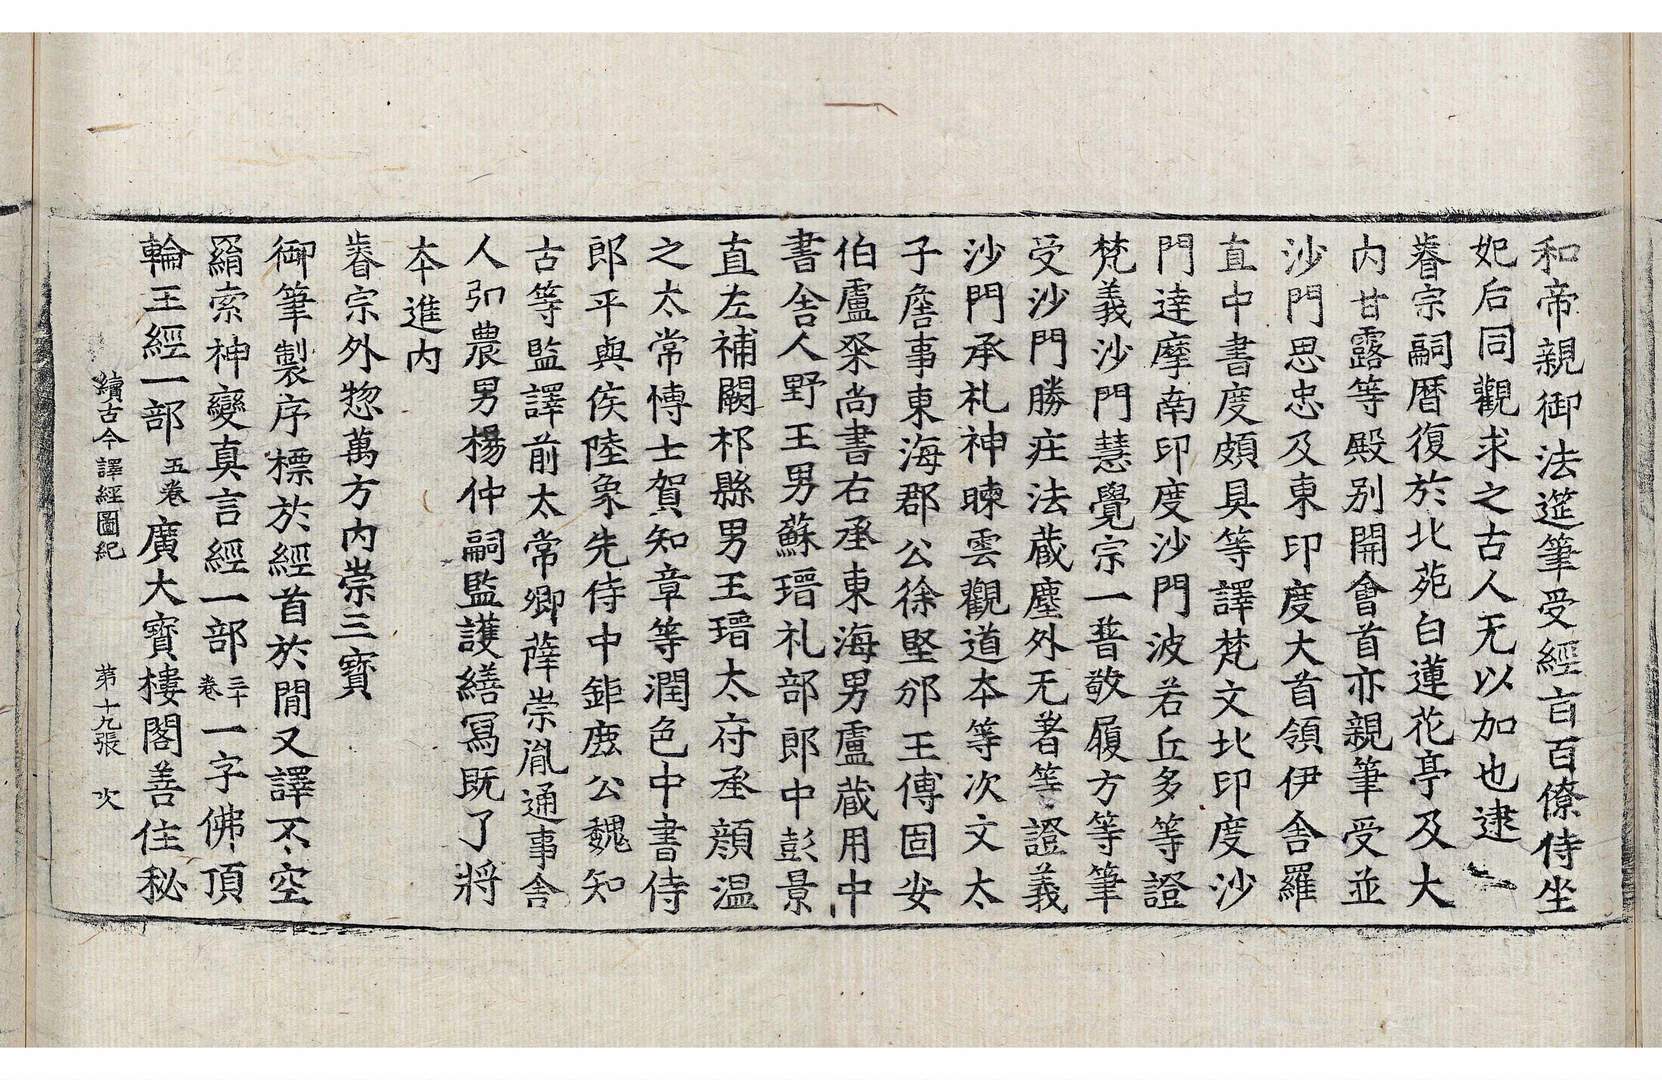 和帝親御法莚筆受經言百僚侍坐
妃后同觀求之古人无以加也逮
睿宗嗣曆復於北苑白蓮花亭及大
內甘露等殿別開會首亦親筆受並
沙門思忠及東印度大首領伊舍羅
直中書度頗具等譯梵文北印度沙
門達摩南印度沙門波若丘多等證
梵義沙門慧覺宗一普敬履方等筆
受沙門勝庄法藏塵外无著等證義
沙門承礼神暕雲觀道本等次文太
子詹事東海郡公徐堅邠王傅固安
伯盧粲尚書右丞東海男盧藏用中
書舍人野王男蘇瑨礼部郎中彭景
直左補闕祁縣男王瑨太府丞顔温
之太常博士賀知章等潤色中書侍
郎平輿侯陸象先侍中鉅鹿公魏知
古等監譯前太常卿薛崇胤通事舍
人弘農男楊仲嗣監護繕寫既了將
本進內
睿宗外惣萬方內崇三寶
御筆製序標於經首於閒又譯不空
羂索神變眞言經一部三十卷一字佛頂
輪王經一部五卷廣大寶樓閣善住秘
續古今譯經圖紀 第十九張